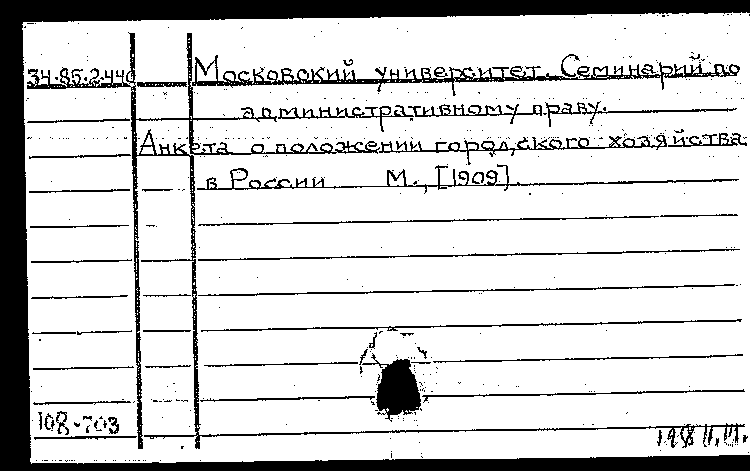 34.85.2.440 Московский университет. Семинарий по
административному праву.
Анкета о положении городского хозяйства
в России М., [1909].
108-703